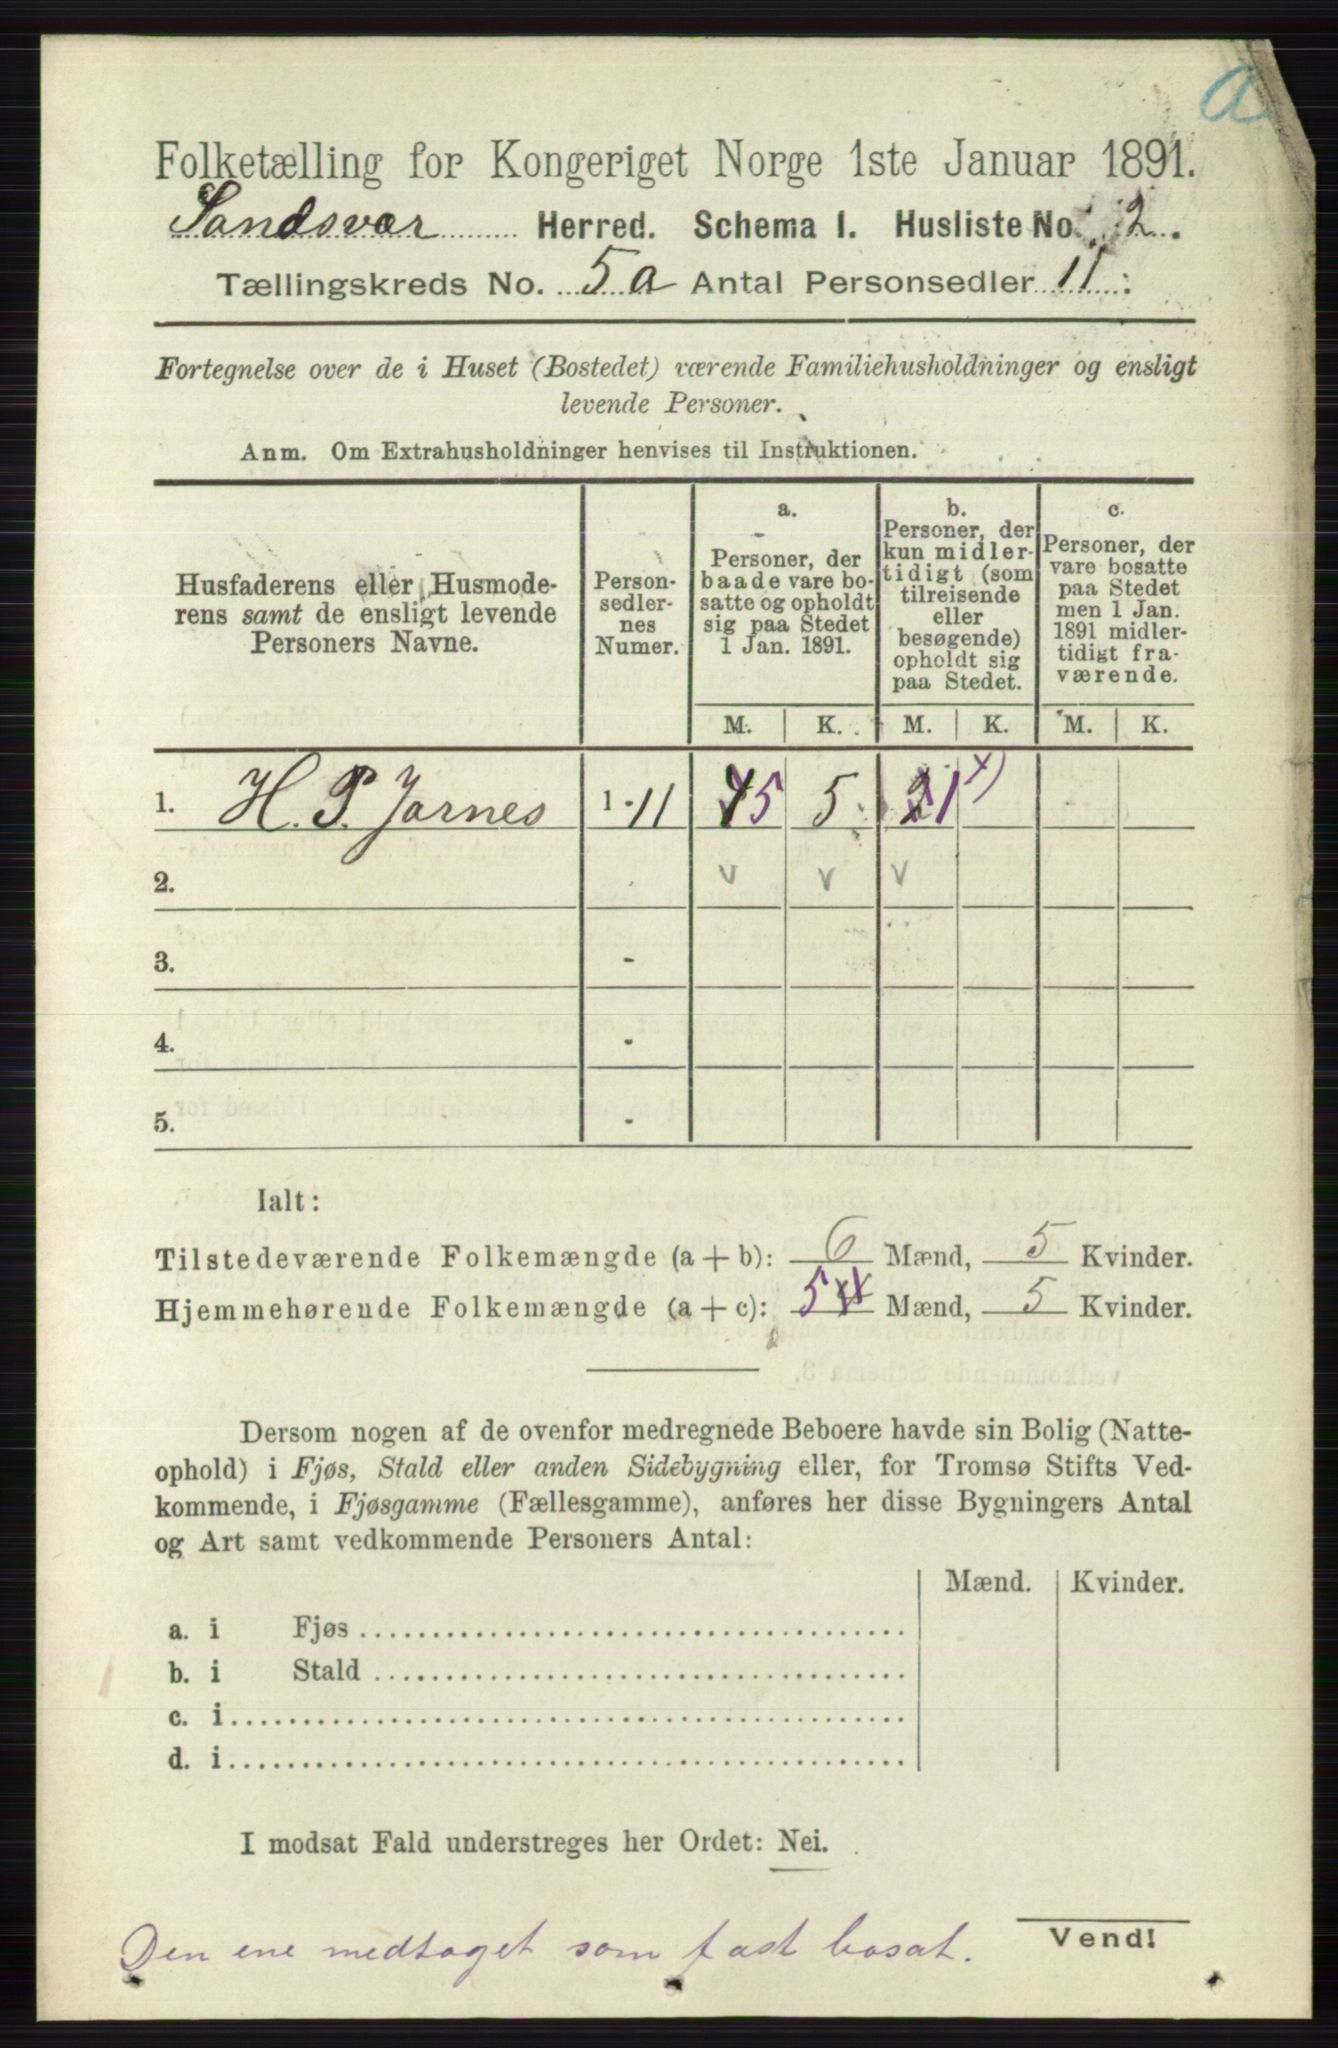 a
Folketælling for Kongeriget Norge 1ste Januar 1891.
Sandsvær Herred. Schema I. Husliste No. 2.
Tællingskreds No. 5 a Antal Personsedler 11.
Fortegnelse over de i Huset (Bostedet) værende Familiehusholdninger og ensligt
levende Personer.
Anm. Om Extrahusholdninger henvises til Instruktionen.
Husfaderens eller Husmode-
rens samt de ensligt levende
Personers Navne.
Person-
sedler-
nes
Numer.
a.
Personer, der
baade vare bo-
satte og opholdt
sig paa Stedet
1 Jan. 1891.
b.
Personer, der
kun midler-
tidigt (som
tilreisende
eller
besøgende)
opholdt sig
paa Stedet.
c.
Personer, der
vare bosatte
paa Stedet
men 1 Jan.
1891 midler-
tidigt fra-
værende.
M. K. M. K. M. K.
1. H. P. Jarnes 1 - 11 5 5 1 x)
2. v v v
3. -
4. -
5. -
Ialt:
Tilstedeværende Folkemængde (a + b): 6 Mænd, 5 Kvinder.
Hjemmehørende Folkemængde (a + c): 5 Mænd, 5 Kvinder.
Dersom nogen af de ovenfor medregnede Beboere havde sin Bolig (Natte-
ophold) i Fjøs, Stald eller anden Sidebygning eller, for Tromsø Stifts Ved-
kommende, i Fjøsgamme (Fællesgamme), anføres her disse Bygningers Antal
og Art samt vedkommende Personers Antal:
Mænd. Kvinder.
a. i Fjøs
b. i Stald
c. i
d. i
I modsat Fald understreges her Ordet: Nei.
Vend!
Den ene medtaget som fast bosat.